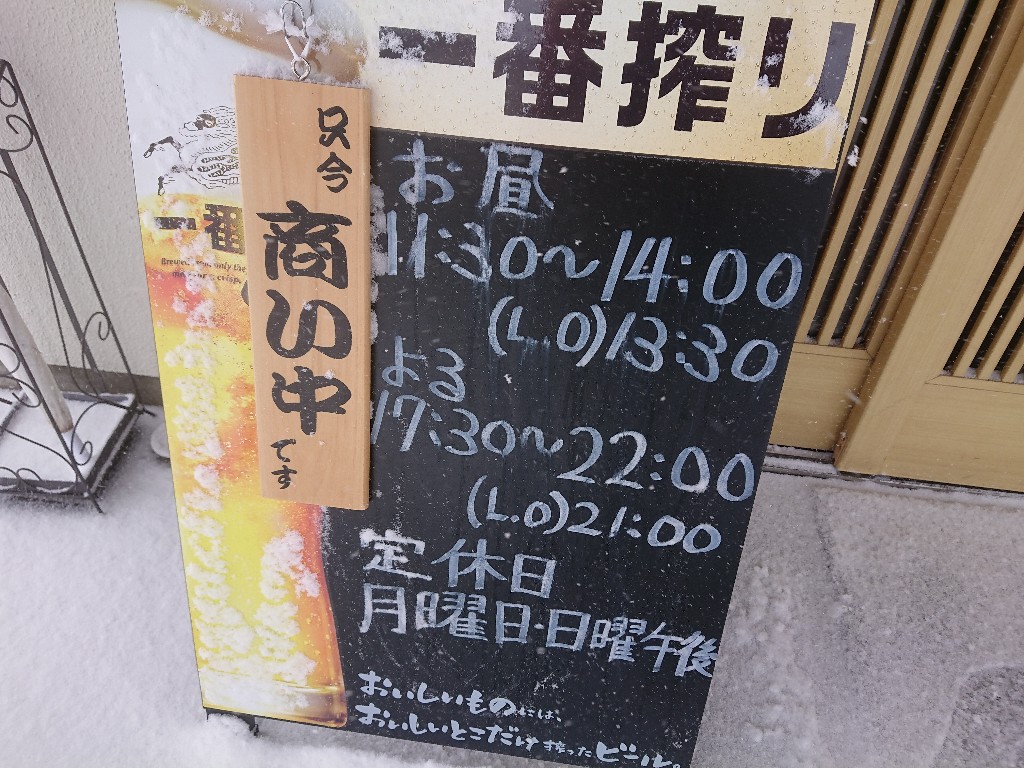 一番搾り
只今
商い中
です
一番
お昼
11:30〜14:00
(L.O)13:30
よる
17:30〜22:00
(L.O)21:00
定休日
月曜日・日曜午後
おいしいものには、
おいしいとこだけ搾ったビール。